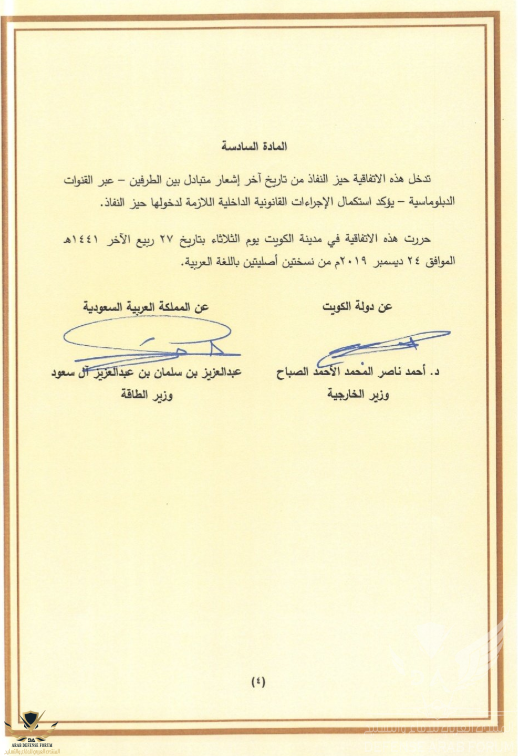 المادة السادسة
تدخل هذه الاتفاقية حيز النفاذ من تاريخ آخر إشعار متبادل بين الطرفين – عبر القنوات
الدبلوماسية – يؤكد استكمال الإجراءات القانونية الداخلية اللازمة لدخولها حيز النفاذ.
حررت هذه الاتفاقية في مدينة الكويت يوم الثلاثاء بتاريخ ٢٧ ربيع الآخر ١٤٤١هـ
الموافق ٢٤ ديسمبر ٢٠١٩م من نسختين أصليتين باللغة العربية.
عن دولة الكويت
د. أحمد ناصر المحمد الأحمد الصباح
وزير الخارجية
عن المملكة العربية السعودية
عبدالعزيز بن سلمان بن عبدالعزيز آل سعود
وزير الطاقة
(٤)
DA
ARAB DEFENSE FORUM